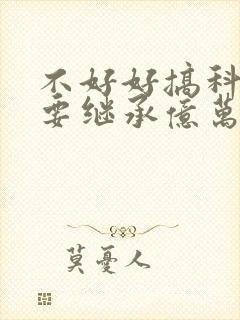 不好好搞科
要继承億萬
莫憂人